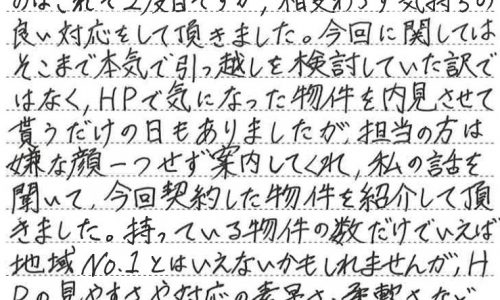 のはこれで2度目ですが、相変わらず気持ちの
良い対応をして頂きました。今回に関しては
そこまで本気で引っ越しを検討していた訳で
はなく、HPで気になった物件を内見させて
貰うだけの日もありましたが、担当の方は
嫌な顔一つせず案内してくれ、私の話を
聞いて、今回契約した物件を紹介して頂
きました。持っている物件の数だけでいえば
地域No.1とはいえないかもしれませんが、H
Pの見やすさや対応の素早さ、柔軟さなど